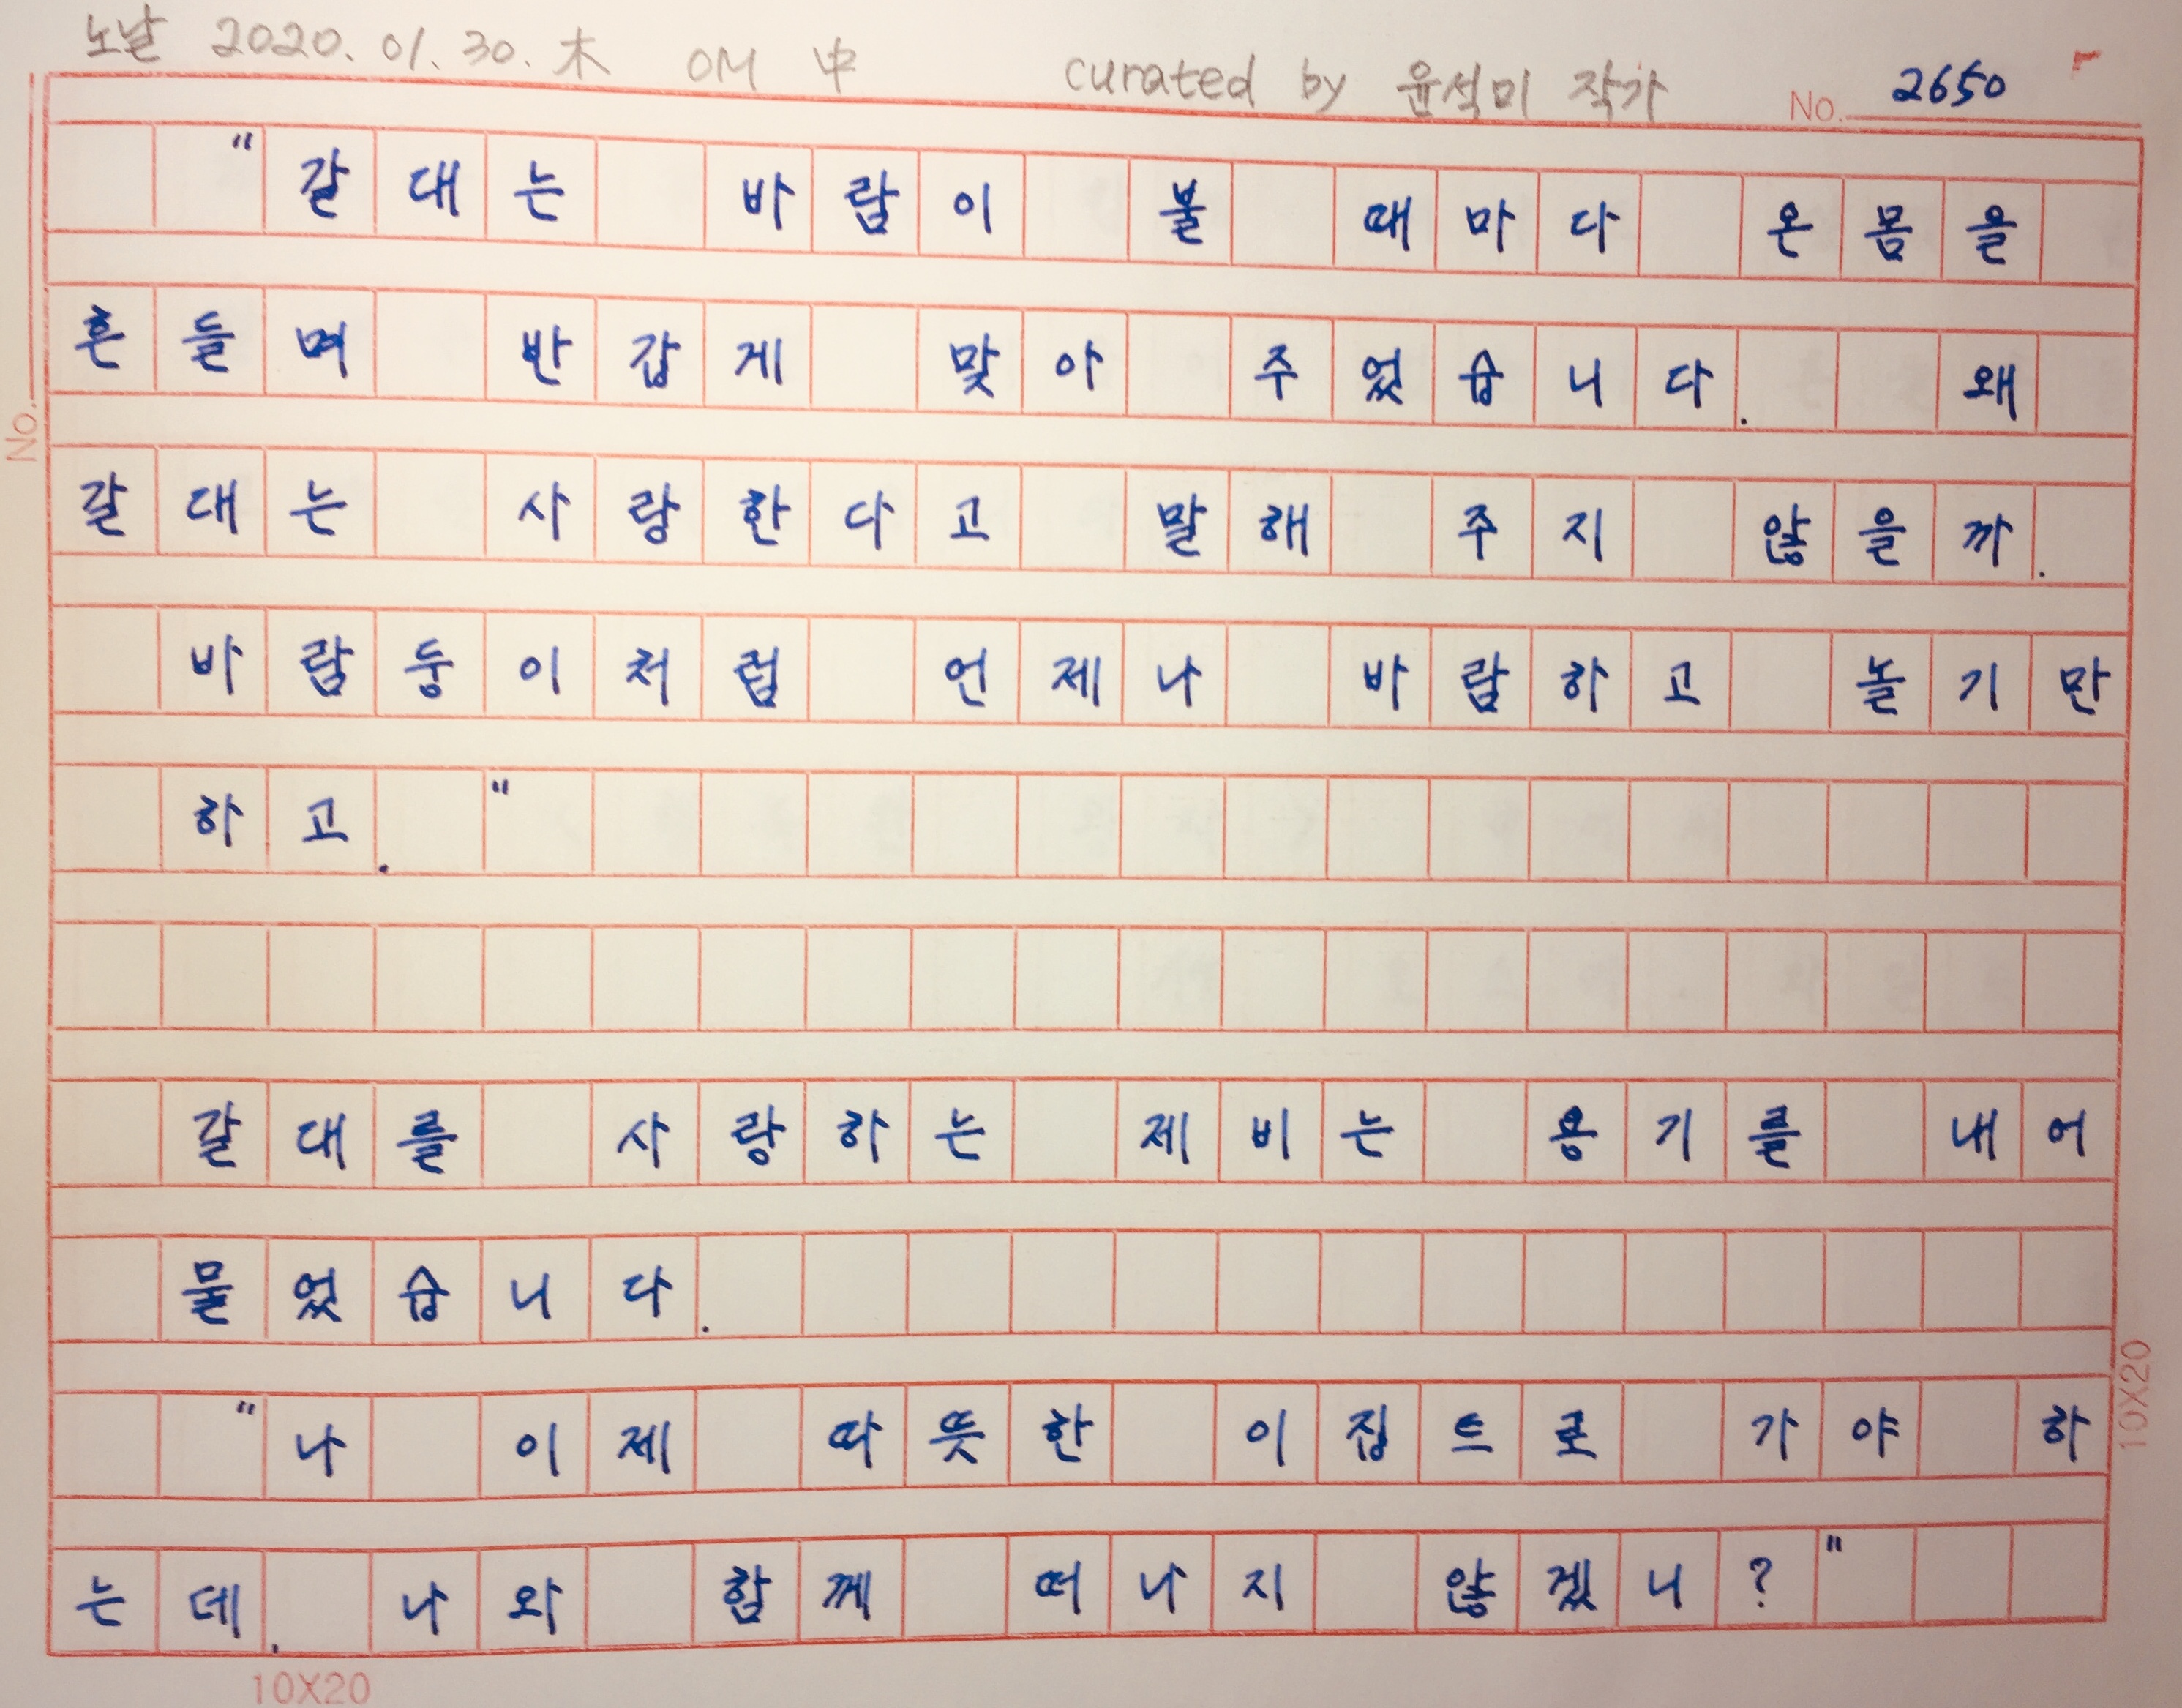 노날 2020. 01. 30. 木 OM 中 curated by 윤석미 작가 No. 2650
"갈대는 바람이 불 때마다 온몸을
흔들며 반갑게 맞아 주었습니다. 왜
갈대는 사랑한다고 말해 주지 않을까.
바람둥이처럼 언제나 바람하고 놀기만
하고."
갈대를 사랑하는 제비는 용기를 내어
물었습니다.
"나 이제 따뜻한 이집트로 가야 하
는데. 나와 함께 떠나지 않겠니?"
10X20
No.
10X20